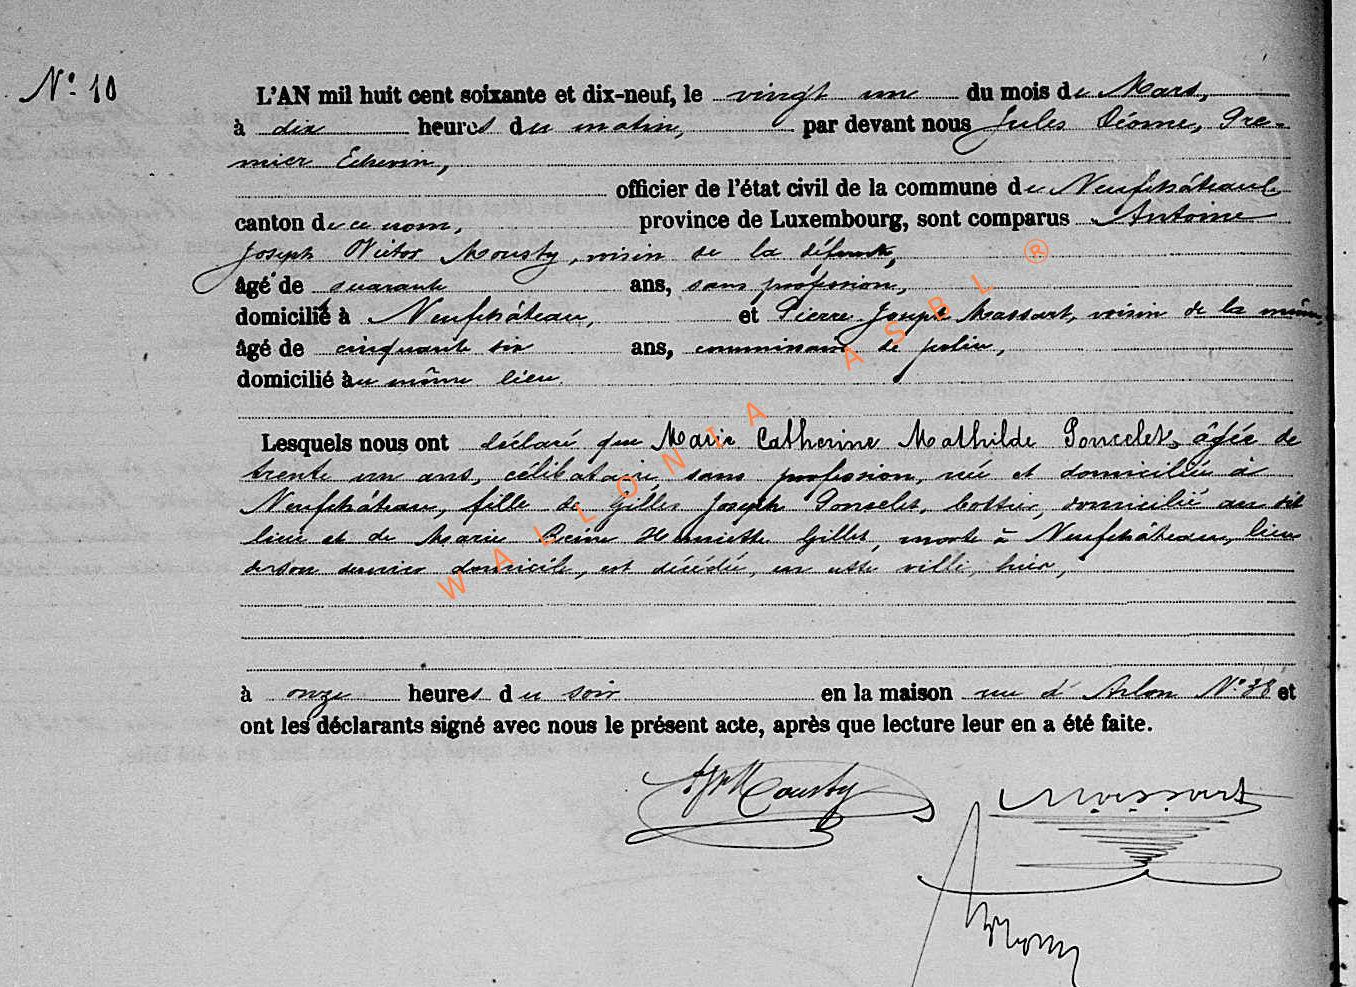 N° 10
L'AN mil huit cent soixante et dix-neuf, le vingt un du mois de Mars,
à dix heures du matin, par devant nous Jules Déome, Pre-
mier Echevin,
officier de l'état civil de la commune de Neufchâteau
canton de ce nom, province de Luxembourg, sont comparus Antoine
Joseph Victor Mousty, voisin de la défunte,
âgé de quarante ans, sans profession,
domicilié à Neufchâteau, et Pierre Joseph Massart, voisin de la même,
âgé de cinquante six ans, commissaire de police,
domicilié au même lieu.
Lesquels nous ont déclaré que Marie Catherine Mathilde Poncelet, âgée de
trente un ans, célibataire, sans profession, née et domiciliée à
Neufchâteau, fille de Gilles Joseph Poncelet, bottier, domicilié au dit
lieu et de Marie Reine Henriette Gillet, morte à Neufchâteau, lieu
de son dernier domicile, est décédée, en cette ville, hier,
à onze heures du soir en la maison rue d'Arlon N° 38 et
ont les déclarants signé avec nous le présent acte, après que lecture leur en a été faite.
Mousty
Massart
WALLONIA ASBL ®